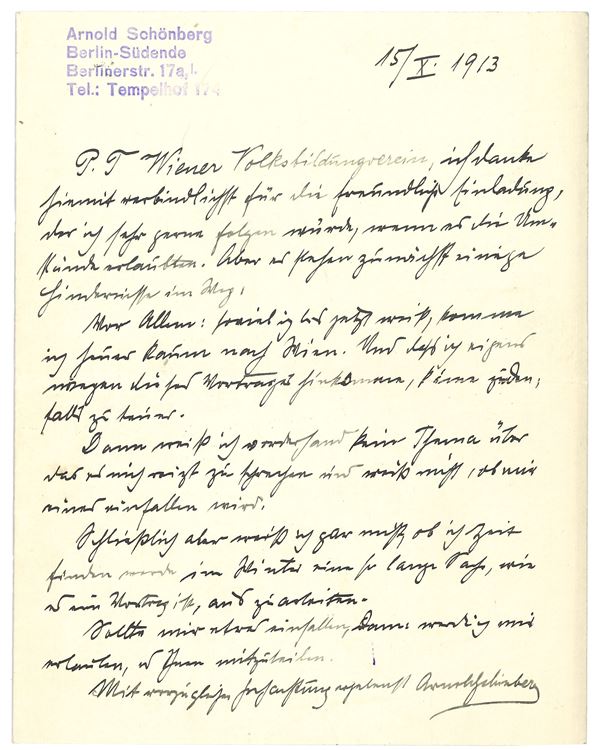 Arnold Schönberg
Berlin-Südende
Berlinerstr. 17a, I.
Tel.: Tempelhof 174
15/X. 1913
P. T. Wiener Volksbildungverein, ich danke
hiemit verbindlichst für die freundliche Einladung,
der ich sehr gerne folgen würde, wenn es die Um-
stände erlaubten. Aber es stehen zunächst einige
Hindernisse im Weg:
Vor Allem: soviel ich bis jetzt weiß, komme
ich heuer kaum nach Wien. Und daß ich eigens
wegen dieses Vortrages hinkomme, käme jeden-
falls zu teuer.
Dann weiß ich vorderhand kein Thema über
das es mich reizt zu sprechen und weiß nicht, ob mir
eines einfallen wird.
Schließlich aber weiß ich gar nicht ob ich Zeit
finden werde im Winter eine so lange Sache, wie
es ein Vortrag ist, auszuarbeiten.
Sollte mir etwas einfallen, dann werde ich mir
erlauben, es Ihnen mitzuteilen.
Mit vorzüglicher Hochachtung ergebenst Arnold Schönberg